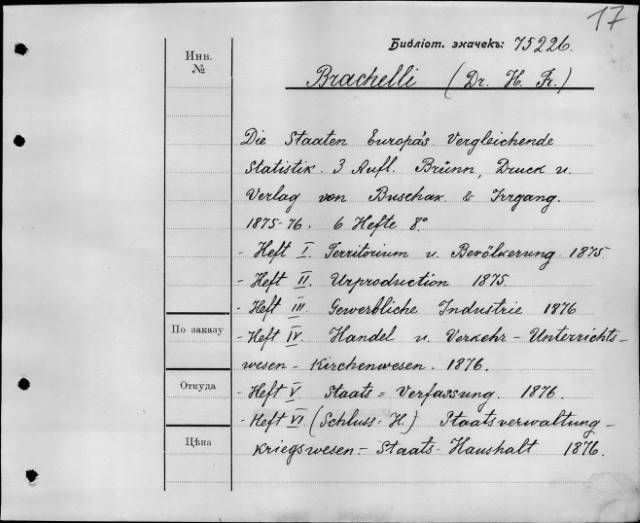 17
Библіот. значекъ: 75226.
Инв.
№
Brachelli (Dr. H. Fr.)
Die Staaten Europa's Vergleichende
Statistik. 3 Aufl. Brünn, Druck u.
Verlag von Buschak & Irrgang.
1875-76. 6 Hefte 8°
- Heft I. Territorium u. Bevölkerung 1875.
- Heft II. Urproduction 1875.
- Heft III. Gewerbliche Industrie 1876
По заказу
- Heft IV. Handel u. Verkehr - Unterrichts-
wesen - Kirchenwesen. 1876.
Откуда
- Heft V. Staats = Verfassung. 1876.
- Heft VI (Schluss-H.) Staatsverwaltung -
Цѣна
Kriegswesen - Staats-Haushalt 1876.